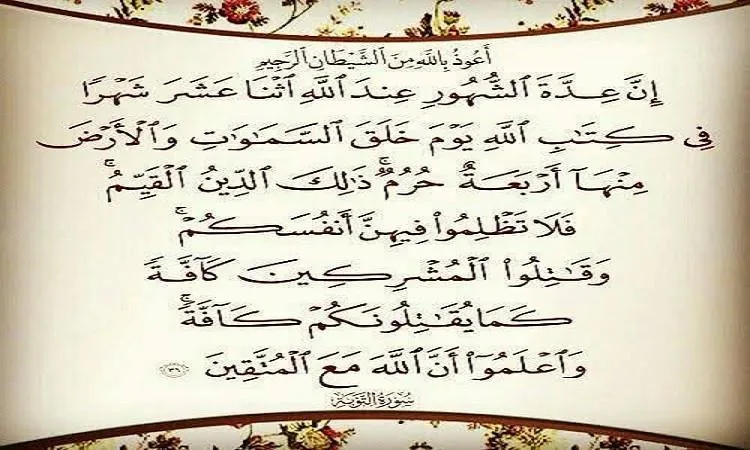 أَعُوذُ بِاللَّهِ مِنَ الشَّيْطَانِ الرَّجِيمِ
إِنَّ عِدَّةَ ٱلشُّهُورِ عِندَ ٱللَّهِ ٱثْنَا عَشَرَ شَهْرًا
فِى كِتَٰبِ ٱللَّهِ يَوْمَ خَلَقَ ٱلسَّمَٰوَٰتِ وَٱلْأَرْضَ
مِنْهَآ أَرْبَعَةٌ حُرُمٌ ۚ ذَٰلِكَ ٱلدِّينُ ٱلْقَيِّمُ ۚ
فَلَا تَظْلِمُوا۟ فِيهِنَّ أَنفُسَكُمْ ۚ
وَقَٰتِلُوا۟ ٱلْمُشْرِكِينَ كَآفَّةً
كَمَا يُقَٰتِلُونَكُمْ كَآفَّةً ۚ
وَٱعْلَمُوٓا۟ أَنَّ ٱللَّهَ مَعَ ٱلْمُتَّقِينَ ٣٦
سُورَةُ التَّوْبَة